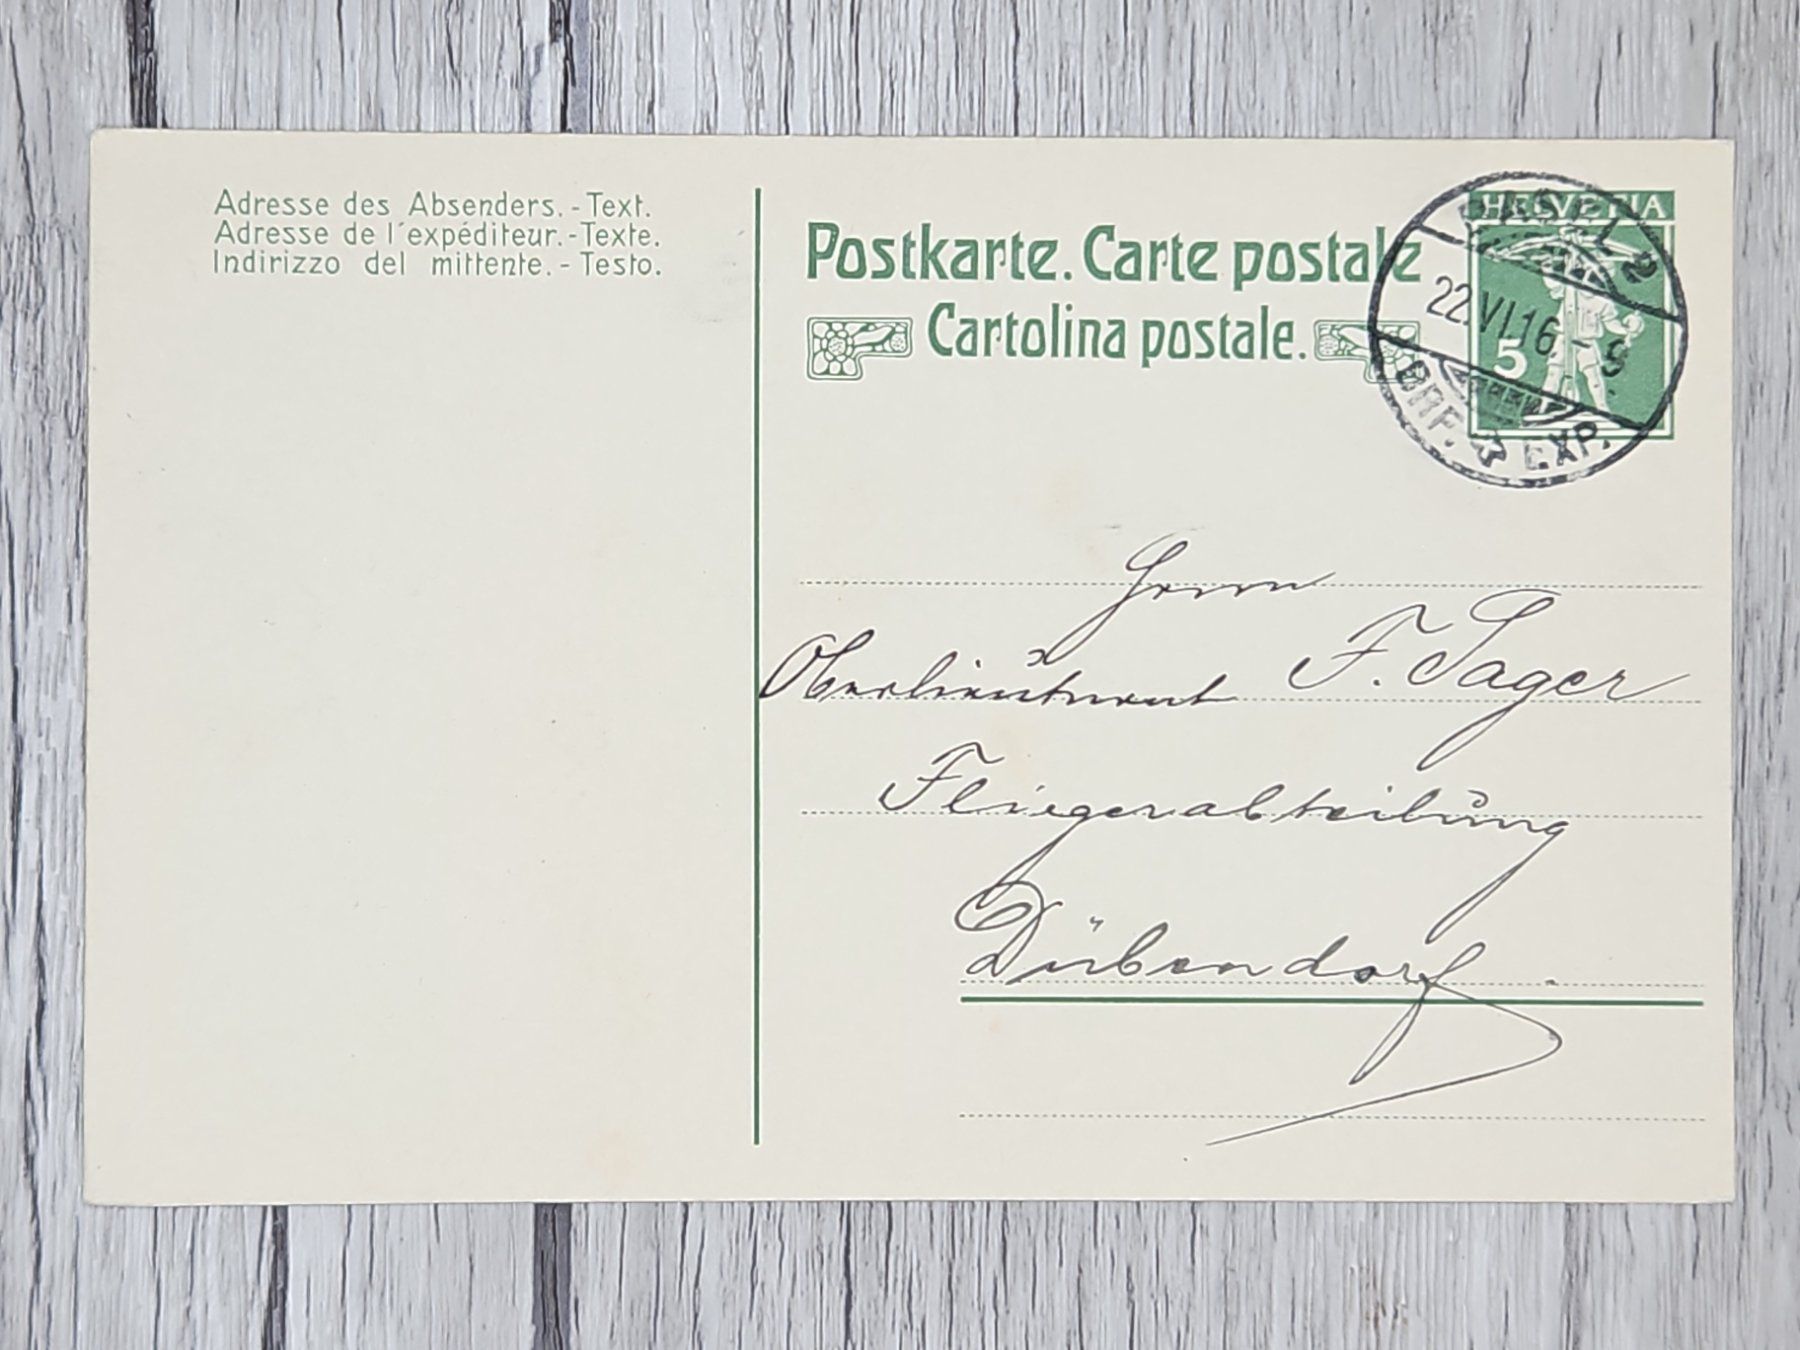 Adresse des Absenders. - Text.
Adresse de l'expéditeur. - Texte.
Indirizzo del mittente. - Testo.
Postkarte. Carte postale
Cartolina postale.
HELVETIA
5
BASEL 2
22.VI.16 - 9
BRF. EXP.
Herrn
Oberlieutnant F. Sager
Fliegerabteilung
Dübendorf.